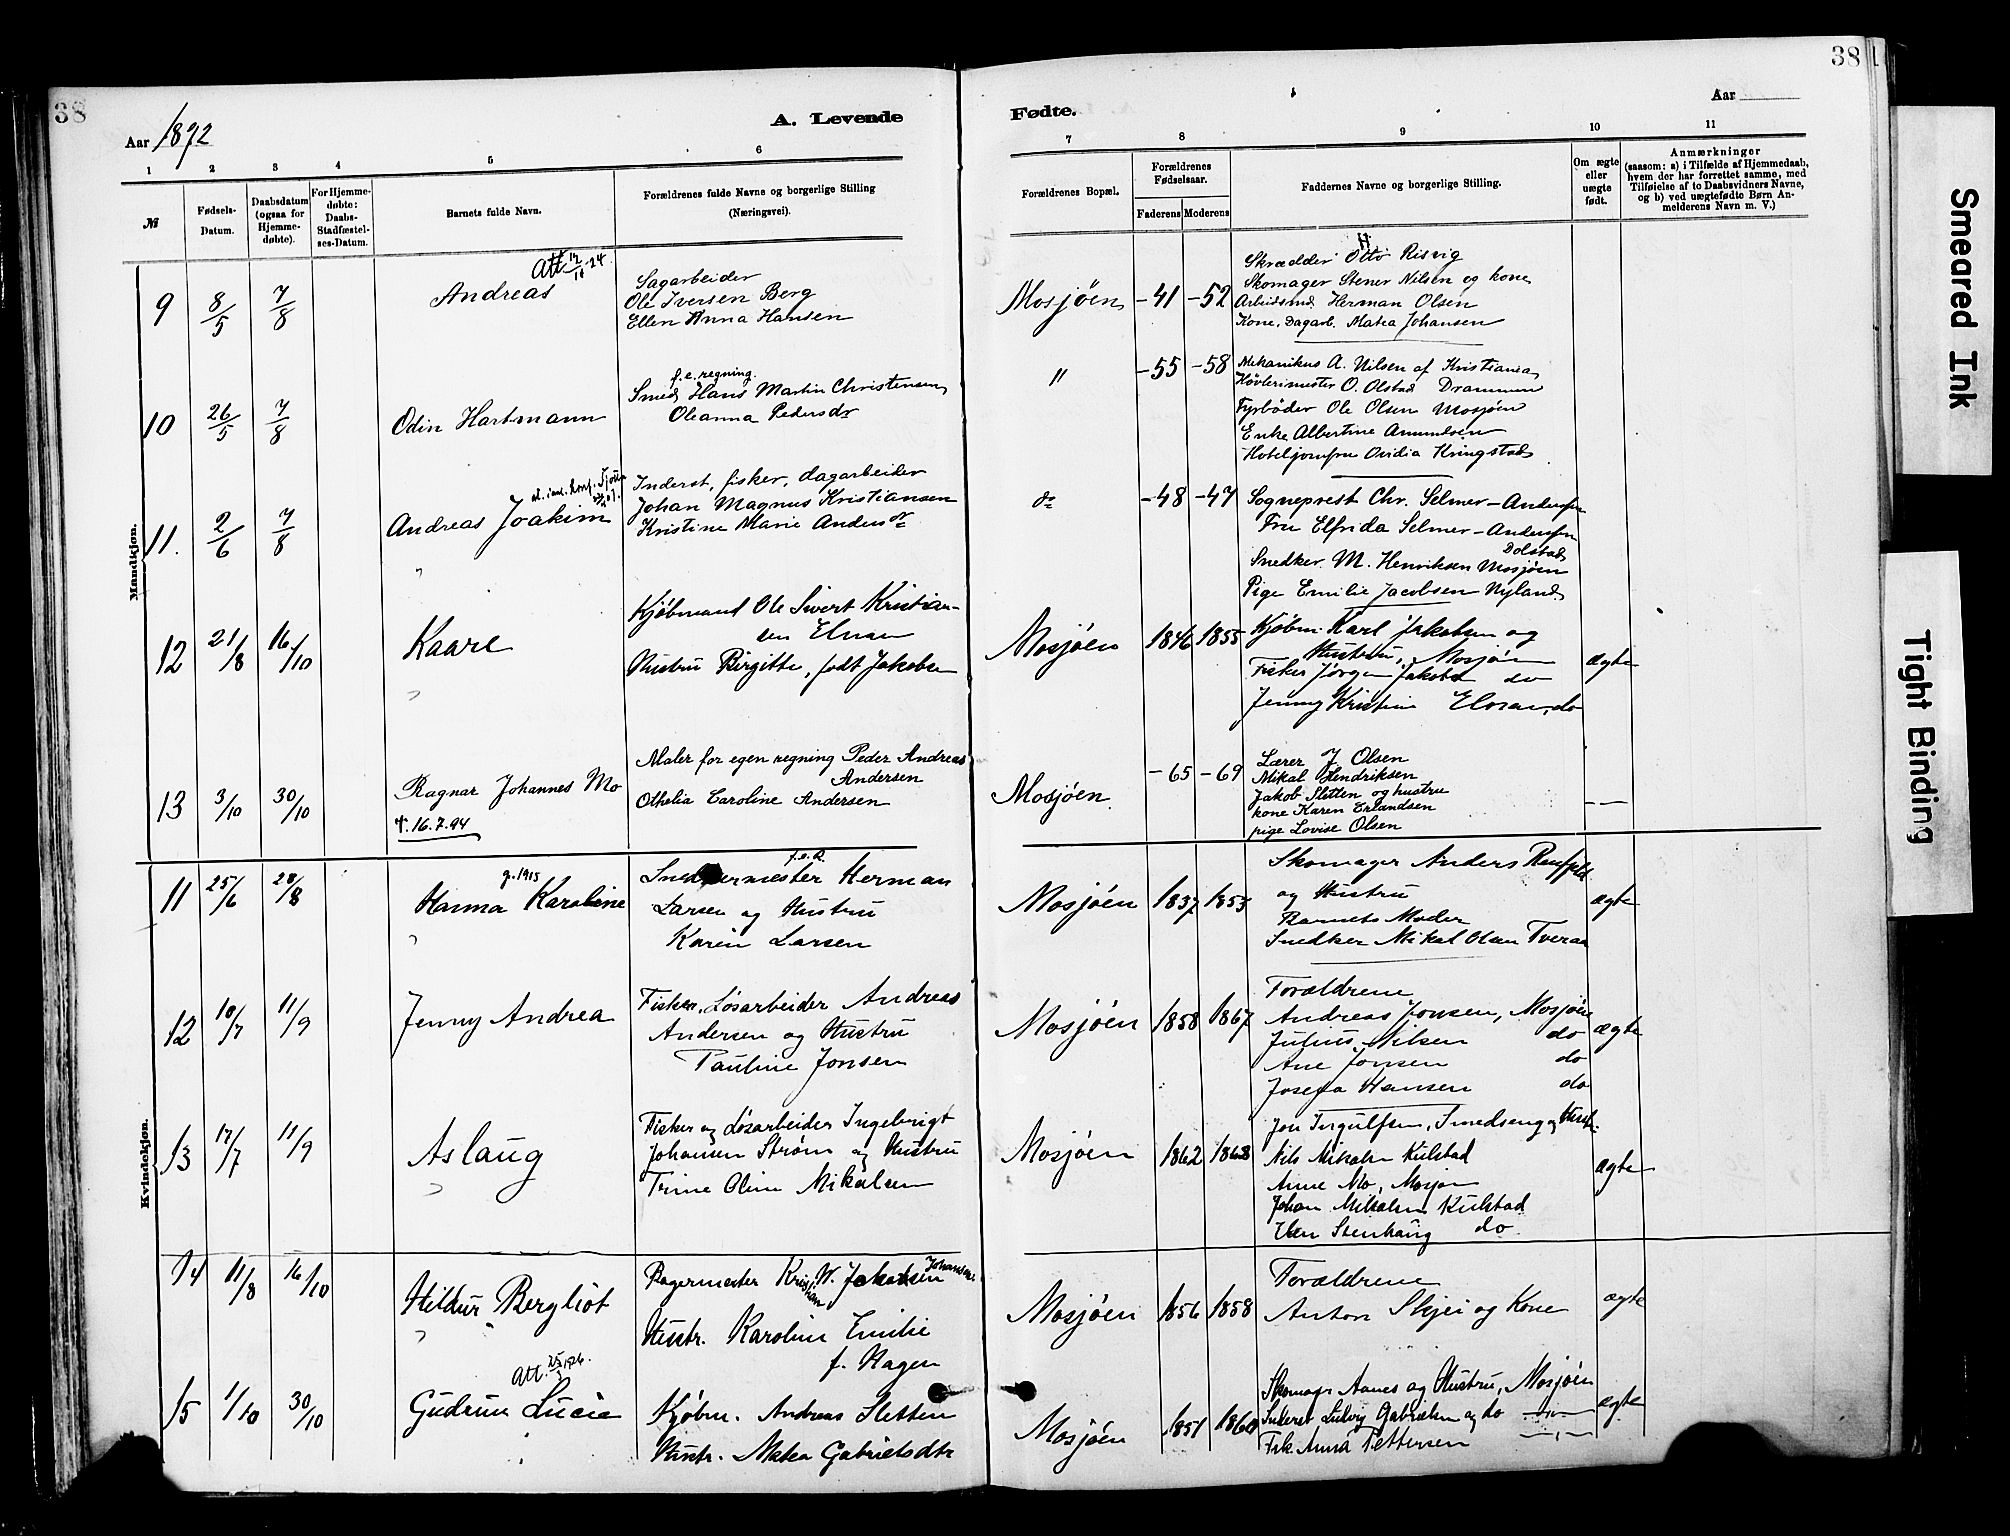 38
38
Aar 1892
A. Levende
Fødte.
Aar
1 2 3 4 5 6
7 8 9 10 11
№
Fødsels-Datum.
Daabsdatum (ogsaa for Hjemme-døbte).
For Hjemme-døbte: Daabs-Stadfæstel-ses-Datum.
Barnets fulde Navn.
Forældrenes fulde Navne og borgerlige Stilling
(Næringsvei).
Forældrenes Bopæl.
Forældrenes Fødselsaar.
Faderens Moderens
Faddernes Navne og borgerlige Stilling.
Om ægte eller uægte født.
Anmærkninger
(saasom: a) i Tilfælde af Hjemmedaab,
hvem der har forrettet samme, med
Tilføielse af to Daabsvidners Navne,
og b) ved uægtefødte Børn An-
melderens Navn m. V.)
Mandkjøn.
9 8/5 7/8
Andreas
Sagarbeider
Ole Iversen Berg
Ellen Anna Hansen
Mosjöen -41 -52
Skrædder Otto H Risvig
Skomager Stener Nilsen og kone
Arbeidsmd. Herman Olsen
Kone, Dagarb. Matea Johansen
10 26/5 7/8
Odin Hartmann
f.e. regning.
Smed Hans Martin Christensen
Oleanna Pedersdr
" -55 -58
Mekanikus A. Nilsen af Kristiania
Høvlerimester O. Olstad Drammen
Fyrbøder Ole Olsen Mosjöen
Enke Albertine Amundsen
Hoteljomfru Ovidia Kringstad
11. 2/6 7/8
Andreas Joakim
Inderst, fisker, dagarbeider
Johan Magnus Kristiansen
Kristine Marie Andersdr
do -48 -47
Sogneprest Chr. Selmer-Andersen
Fru Elfrida Selmer-Andersen
Dolstad
Snedker M. Henriksen Mosjöen
Pige Emilie Jacobsen Nyland
12 21/8 16/10
Kaare
Kjøbmand Ole Sivert Kristian-
sen
Hustru Birgitte, født Jakobsen
Mosjöen 1846 1855
Kjøbm. Karl Jakobsen og
Hustru, Mosjöen
Fisker Jørgen Jakobs do
Jenny Kristine do
ægte
13 3/10 30/10
Ragnar Johannes Mo
†. 16.7.94
Maler for egen regning Peder Andreas
Andersen
Othelia Caroline Andersen
Mosjöen. -65 -69
Lærer J Olsen
Mikal Hendriksen
Jakob Sletten og hustru
kone Karen Erlandsen
pige Lovise Olsen
Kvindekjøn.
11 25/6 28/8
g. 1915
Hanna Karoline
f.e.R.
Snedkermester Herman
Larsen og Hustru
Karin Larsen
Mosjöen 1837 1853
Skomager Anders
og Hustru
Barnets Moder
Snedker Mikal Olsen Tveraa
ægte
12 10/7 11/9
Jenny Andrea
Fisker, Løsarbeider Andreas
Andersen og Hustru
Pauline Jonsen
Mosjöen 1858 1867
Forældrene
Andreas Jonsen, Mosjöen
Julius Nilsen do
Ane Jonsen do
Josefa Hansen do
ægte
13 17/7 11/9
Aslaug
Fisker og Løsarbeider Ingebrigt
Johansen Strøm og Hustru
Trine Oline Mikalsen
Mosjöen 1862 1868
Jon Ingulfsen, Smedseng og Hustr.
Nils Mikalsen Kulstad
Anne Mo, Mosjøen
Johan Mikalsen Kulstad
Stenhaug do
ægte
14 11/8 16/10
Hildur Bergliot
Bagermester Kristian W. Jakobsen Johansen.
Hustr. Karoline Emilie
f. Hagen
Mosjöen 1856 1858
Forældrene
Anton Skjei og Kone
ægte
15 1/10 30/10
Gudrun Lucie
Kjøbm. Andreas Sletten
Hustr. Matea Gabrielsdtr
Mosjöen 1851 1860
Skomager Aanes og Hustru, Mosjöen
Inderst Ludvig Gabrielsen og do
Frk. Anna Pettersen
ægte
Smeared Ink
Tight Binding